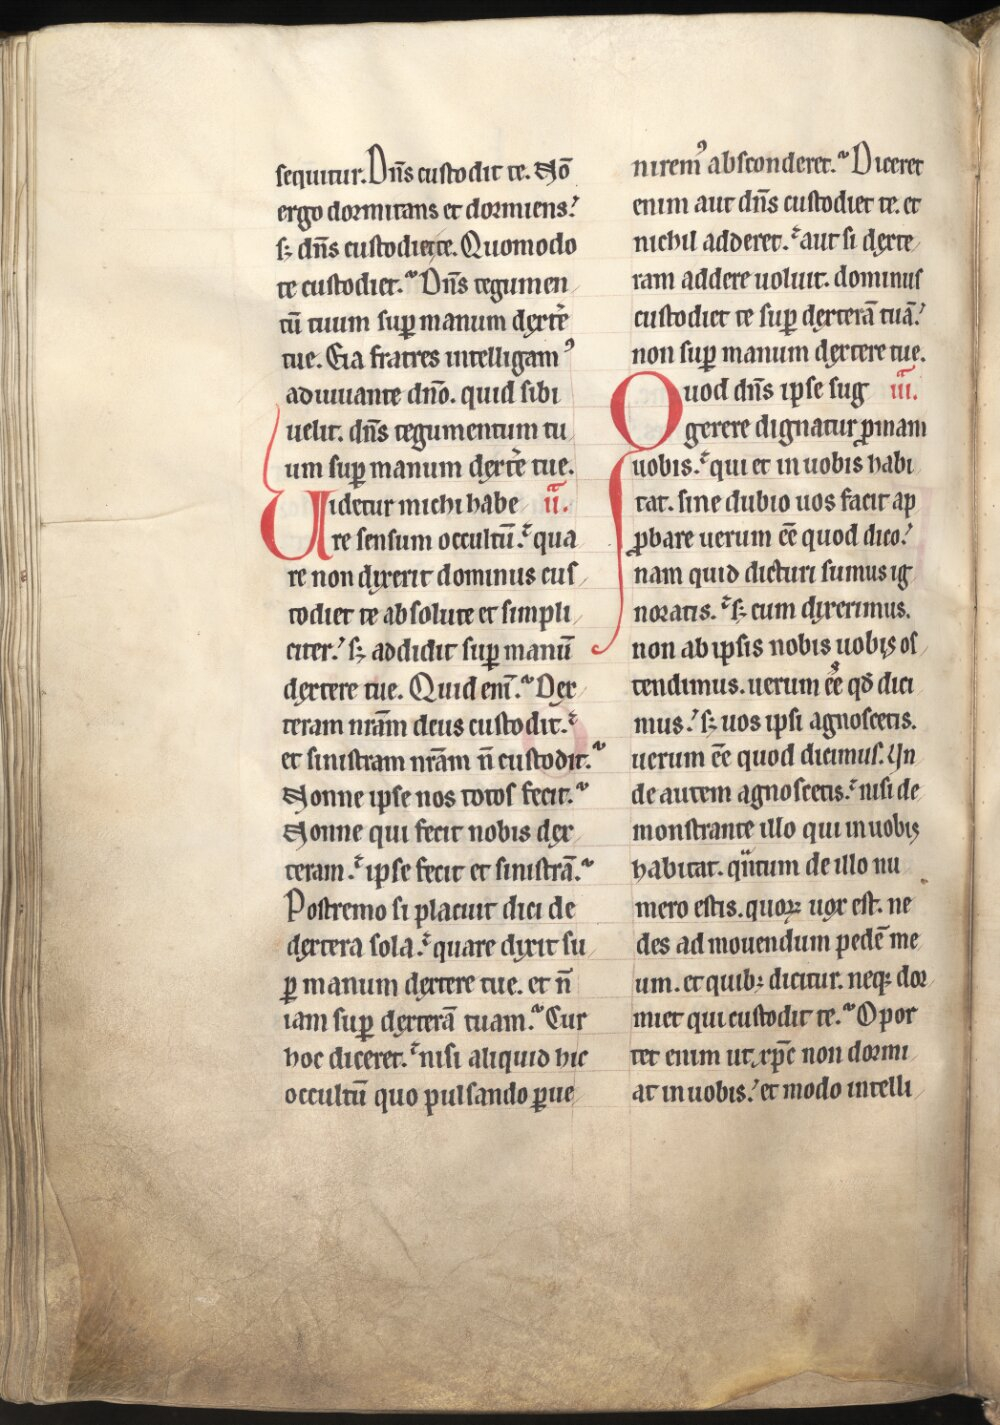 sequitur. Dn̄s custodit te. Nō
ergo dormitans et dormiens?
sꝫ dn̄s custodiet te. Quomodo
te custodiet. Dn̄s tegumen
tū tuum suꝑ manum dexte᷑
tue. Eia fratres intelligamꝰ
adiuuante dn̄o. quid sibi
uelit. dn̄s tegumentum tu
um suꝑ manum dexte᷑ tue.
Uidetur michi habe ii.
re sensum occultū. qua
re non dixerit dominus cus
todiet te absolute et simpli
citer? sꝫ addidit suꝑ manū
dextere tue. Quid eni̅. Dex
teram nr̄am deus custodit.
et sinistram nr̄am n̄ custodit.
Nonne ipse nos totos fecit.
Nonne qui fecit nobis dex
teram. ipse fecit et sinistrā.
Postremo si placuit dici de
dextera sola. quare dixit su
ꝑ manum dextere tue. et n̄
iam suꝑ dexterā tuam. Cur
hoc diceret. nisi aliquid hic
occultū quo pulsando ꝑue
niremꝰ absconderet. Diceret
enim aut dn̄s custodiet te. et
nichil adderet. aut si dexte
ram addere uoluit. dominus
custodiet te suꝑ dexterā tuā?
non suꝑ manum dextere tue.
Quod dn̄s ipse sug iii.
gerere dignatur ꝑ inam
uobis. qui et in uobis habi
tat. sine dubio uos facit ap
ꝓbare uerum ee̅ quod dico?
nam quid dicturi sumus ig
noratis. sꝫ cum dixerimus.
non ab ipsis nobis uobis os
tendimus. uerum ee̅ qd̄ dici
mus? sꝫ uos ipsi agnoscetis.
uerum ee̅ quod dicimus. Un
de autem agnoscetis. nisi de
monstrante illo qui in uobis
habitat. qn̄tum de illo nu
mero estis. quoꝝ uox est. ne
des ad mouendum pedē me
um. et quibꝫ dicitur. neqꝫ dor
miet qui custodit te. Opor
tet enim ut xp̄c non dormi
at in uobis? et modo intelli